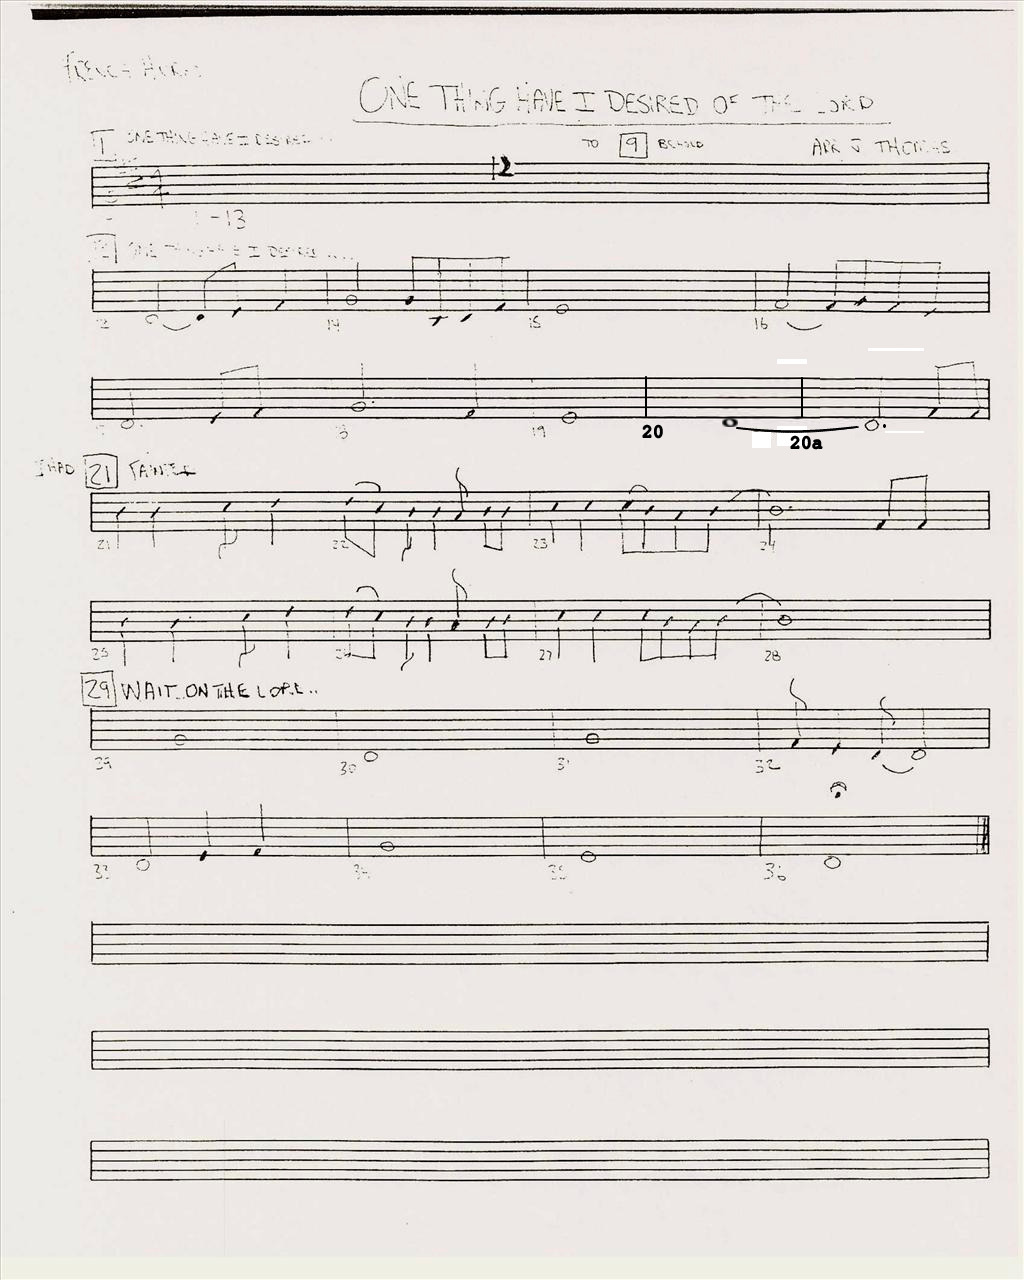 FRENCH HORN
ONE THING HAVE I DESIRED OF THE LORD
1 ONE THING HAVE I DESIRED ... TO 9 BEHOLD ARR J THOMAS
2
4
1-13
ONE THING HAVE I DESIRED ....
14 15 16
19 20 20a
I HAD 21 FAINTED
21 22 23 24
25 26 27 28
29 WAIT..ON THE LORD..
29 30 31 32
33 34 35 36